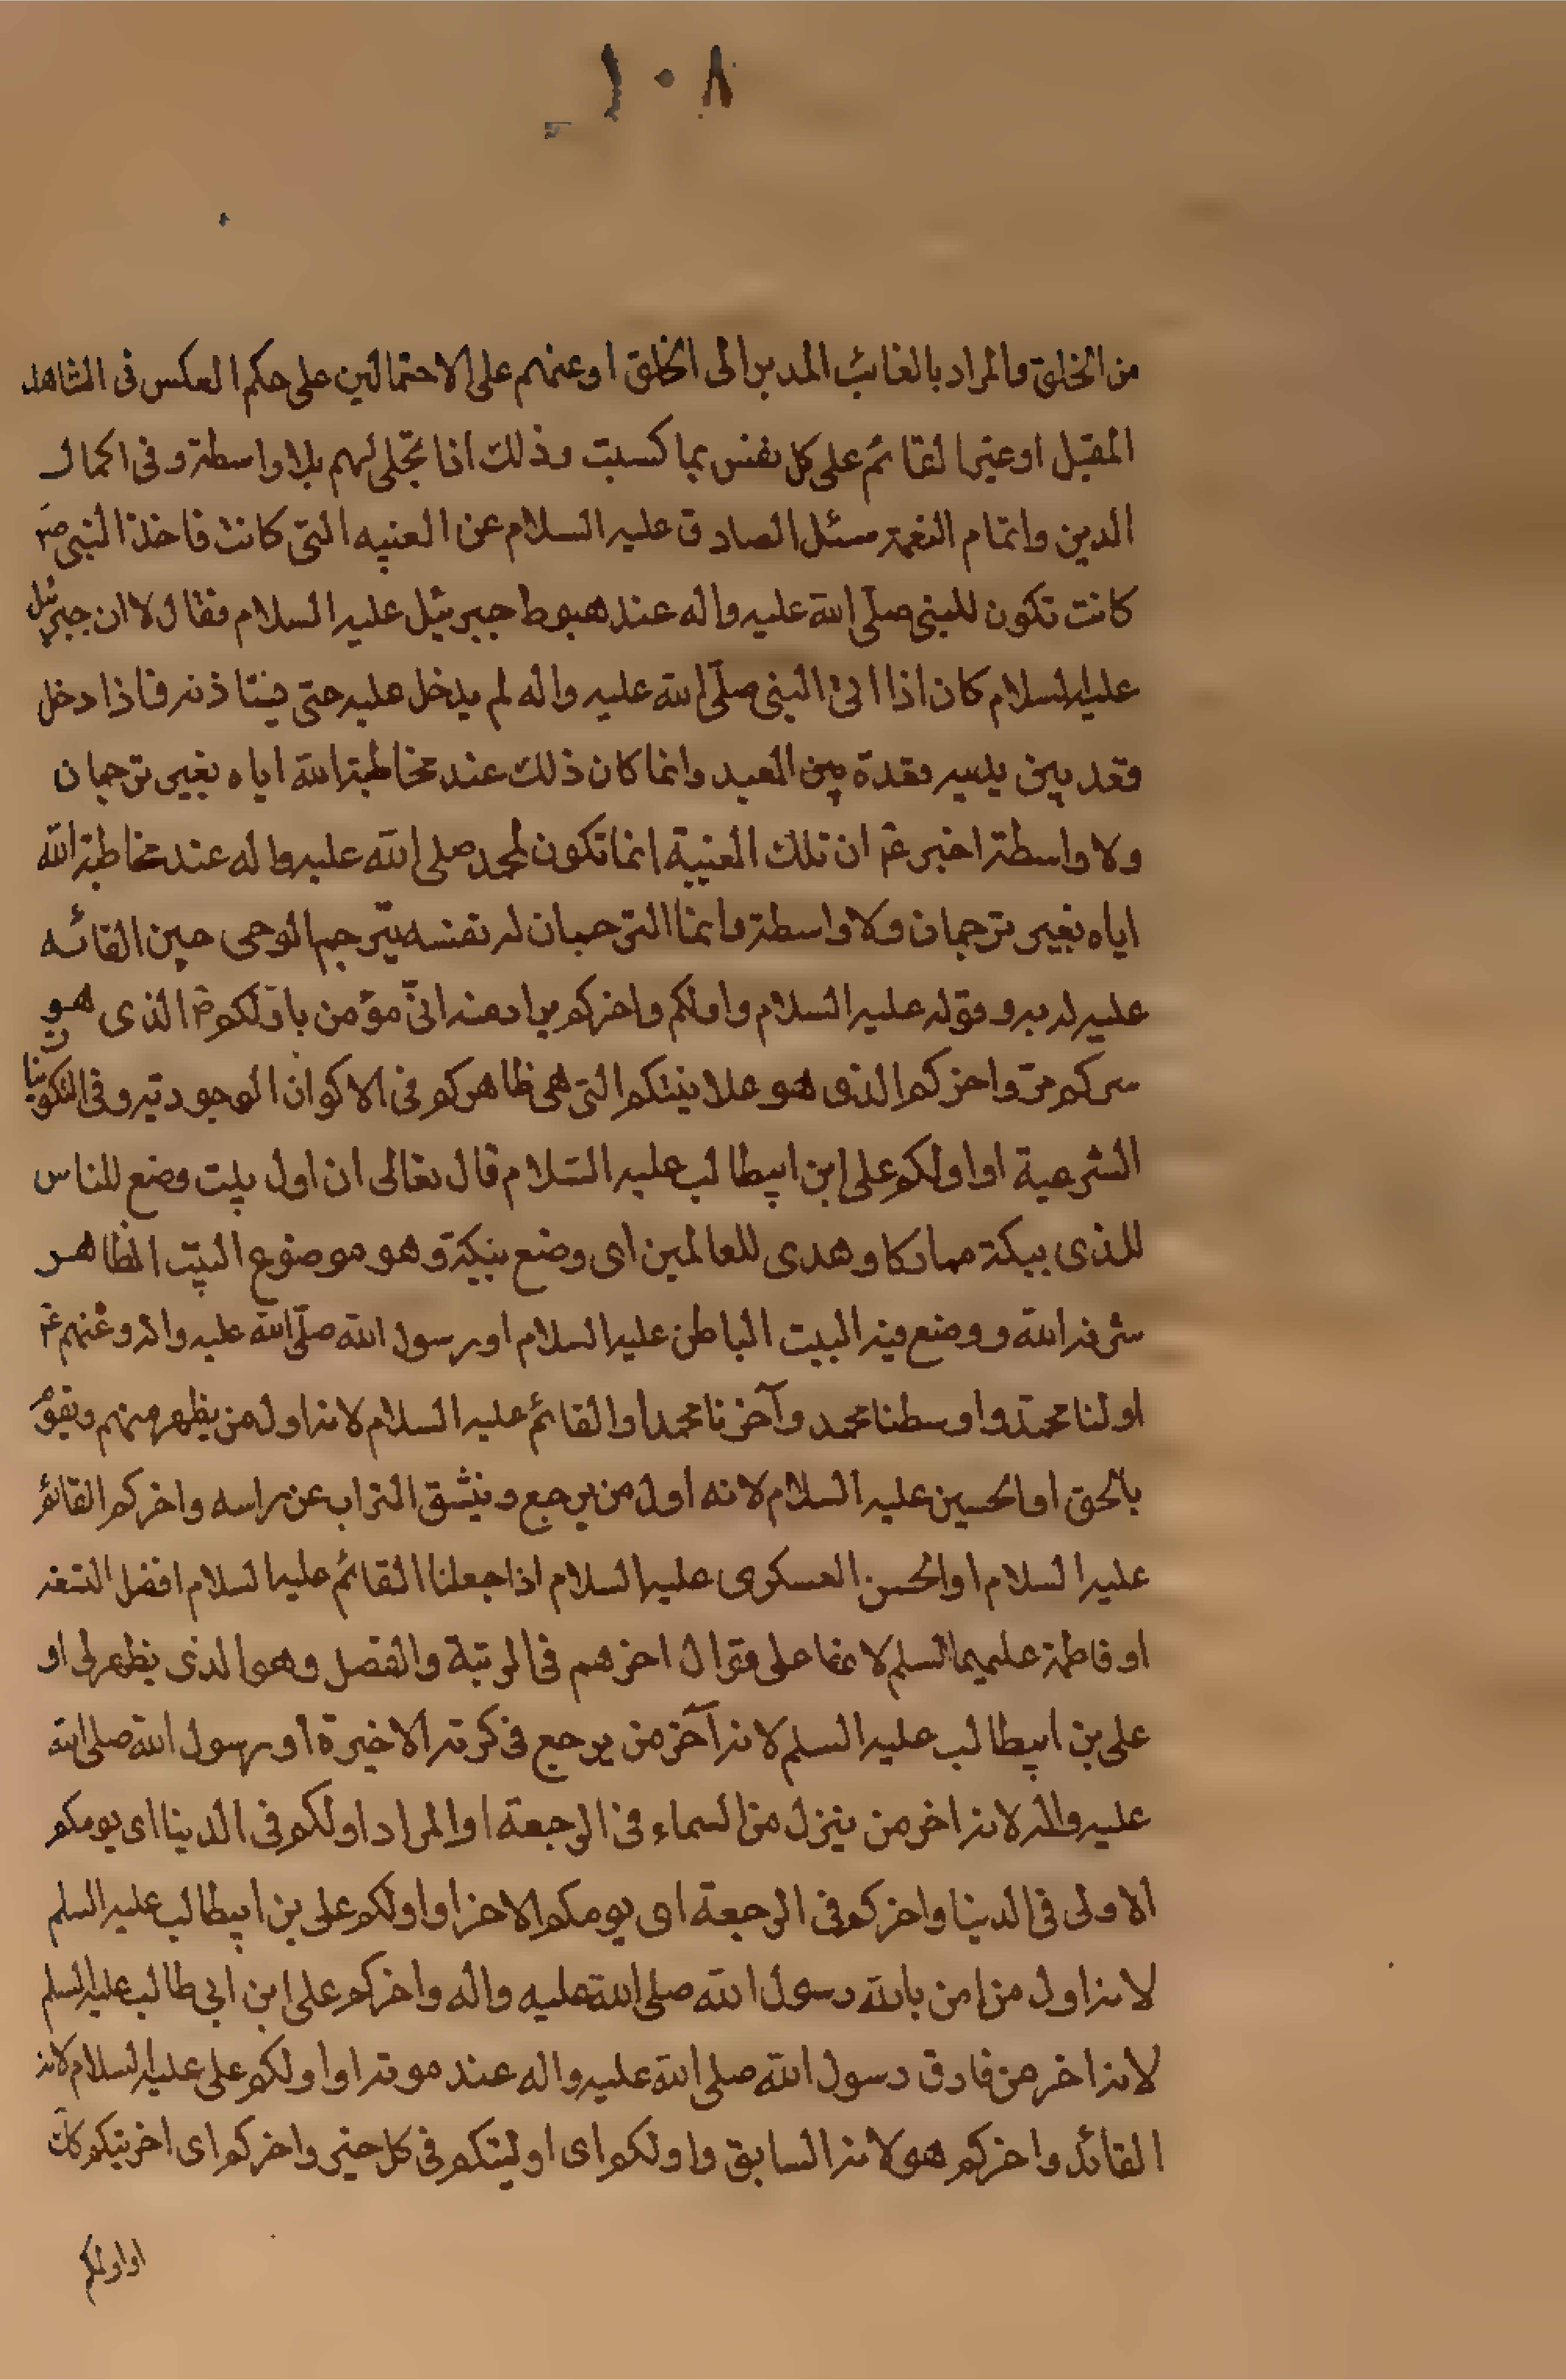 ١٠٨
من الخلق والمراد بالغائب المدبر الى الخلق او عنهم على الاحتمالين على حكم العكس فى الشاهد
المقبل او غير القائم على كل نفس بما كسبت وذلك اذا تجلى لهم بلا واسطة وفى اكمال
الدين واتمام النعمة سئل الصادق عليه السلام عن الغيبه التى كانت فاخذ النبى ص
كانت تكون للنبى صلى الله عليه واله عند هبوط جبرئيل عليه السلام فقال لا ان جبرئيل
عليه السلام كان اذا اتى النبى صلى الله عليه واله لم يدخل عليه حتى يستاذنه فاذا دخل
قعد بين يديه قعدة بين العبد وانما كان ذلك عند مخاطبة الله اياه بغير ترجمان
ولا واسطة اخبر ع ان تلك الغيبة انما تكون لمحمد صلى الله عليه واله عند مخاطبة الله
اياه بغير ترجمان ولا واسطة وانما الترجمان له نفسه يترجم الوحى حين القائه
عليه لديه وقوله عليه السلام واولكم واخركم يراد منه انى مؤمن باولكم الذى هو
سركم واخركم الذى هو علانيتكم التى هى ظاهركم فى الاكوان الوجودية وفى التكوينات
الشرعية او اولكم على ابن ابيطالب عليه السلام قال تعالى ان اول بيت وضع للناس
للذى ببكة مباركا وهدى للعالمين اى وضع ببكة وهو موضوع البيت الظاهر
شرفه الله ووضع فيه البيت الباطن عليه السلام او رسول الله صلى الله عليه واله وعنهم ع
اولنا محمد واوسطنا محمد وآخرنا محمد او القائم عليه السلام لانه اول من يظهر منهم ويقوم
بالحق او الحسين عليه السلام لانه اول من يرجع وينشق التراب عن راسه واخركم القائم
عليه السلام او الحسن العسكرى عليه السلام اذا جعلنا القائم عليه السلام افضل التسعه
او فاطمة عليها السلم لانها على قول اخرهم فى الرتبة والفضل وهو الذى يظهر لى او
على بن ابيطالب عليه السلم لانه آخر من يرجع فى كرته الاخيرة او رسول الله صلى الله
عليه واله لانه اخر من ينزل من السماء فى الرجعة او المراد اولكم فى الدنيا اى يومكم
الاولى فى الدنيا واخركم فى الرجعة اى يومكم الاخر او اولكم على بن ابيطالب عليه السلم
لانه اول من امن بالله رسول الله صلى الله عليه واله واخركم على ابن ابى طالب عليه السلم
لانه اخر من فارق رسول الله صلى الله عليه واله عند موته او اولكم على عليه السلام لانه
القائد واخركم هو لانه السابق واولكم اى اوليتكم فى كل خير واخركم اى اخريتكم كك
او اولكم